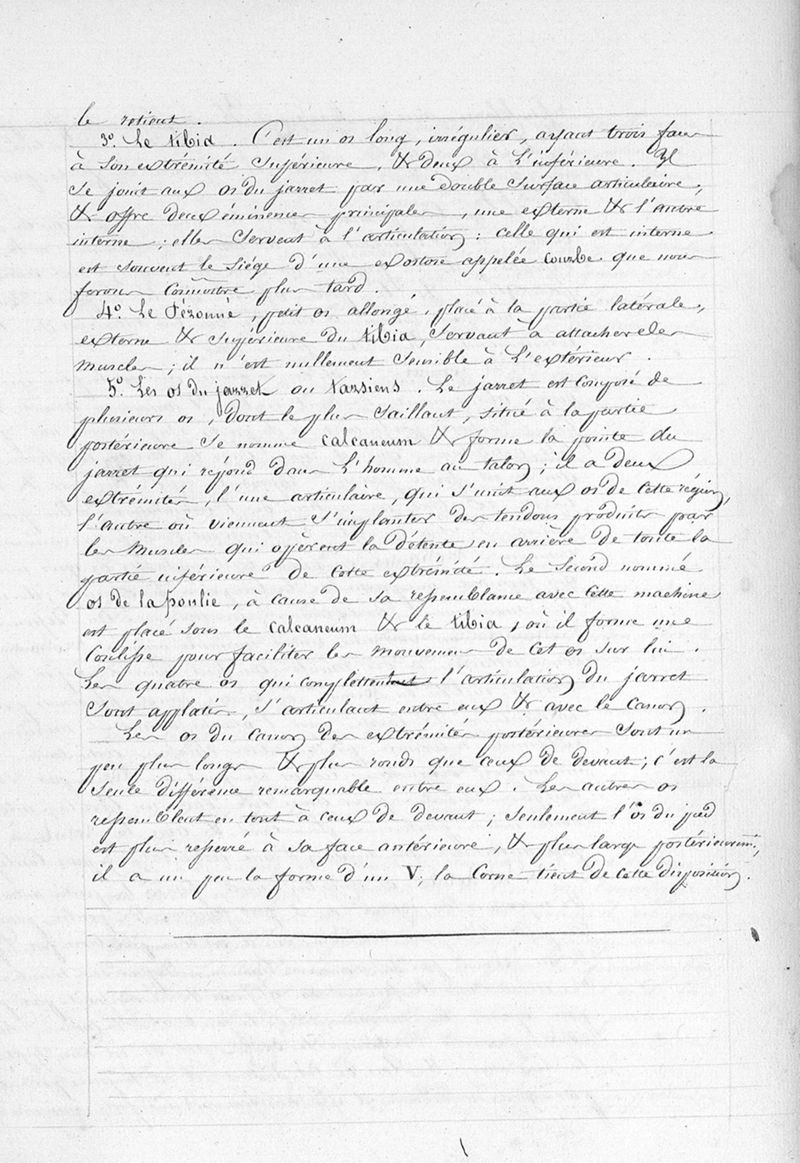 le retient.
3º. Le tibia. C'est un os long, irrégulier, ayant trois faces
à son extrémité supérieure, & deux à l'inférieure. Il
se joint aux os du jarret par une double surface articulaire,
& offre deux éminences principales, une externe & l'autre
interne; elles servent à l'articulation: celle qui est interne
est souvent le siége d'une exostose appelée courbe que nous
ferons connaitre plus tard.
4º. Le Péronné, petit os allongé, placé à la partie latérale,
externe & supérieure du tibia, servant à attacher des
muscles; il n'est nullement sensible à l'extérieur.
5º. Les os du jarret ou tarsiens. Le jarret est composé de
plusieurs os, dont le plus saillant, situé à la partie
postérieure se nomme calcaneum & forme la pointe du
jarret qui répond dans l'homme au talon; il a deux
extrémités, l'une articulaire, qui s'unit aux os de cette région,
l'autre où viennent s'implanter des tendons produits par
les muscles qui opèrent la détente en arrière de toute la
partie inférieure de cette extrémité. Le second nommé
os de la poulie, à cause de sa ressemblance avec cette machine
est placé sous le calcaneum & le tibia, où il forme une
coulisse pour faciliter les mouvemens de cet os sur lui.
Les quatre os qui complettent l'articulation du jarret
sont applatis, s'articulant entre eux & avec le canon.
Les os du canon des extrémités postérieures sont un
peu plus longs & plus ronds que ceux de devant; c'est la
seule différence remarquable entre eux. Les autres os
ressemblent en tout à ceux de devant; seulement l'os du pied
est plus resserré à sa face antérieure, & plus large postérieurem.t,
il a un peu la forme d'un V; la corne tient de cette disposition.